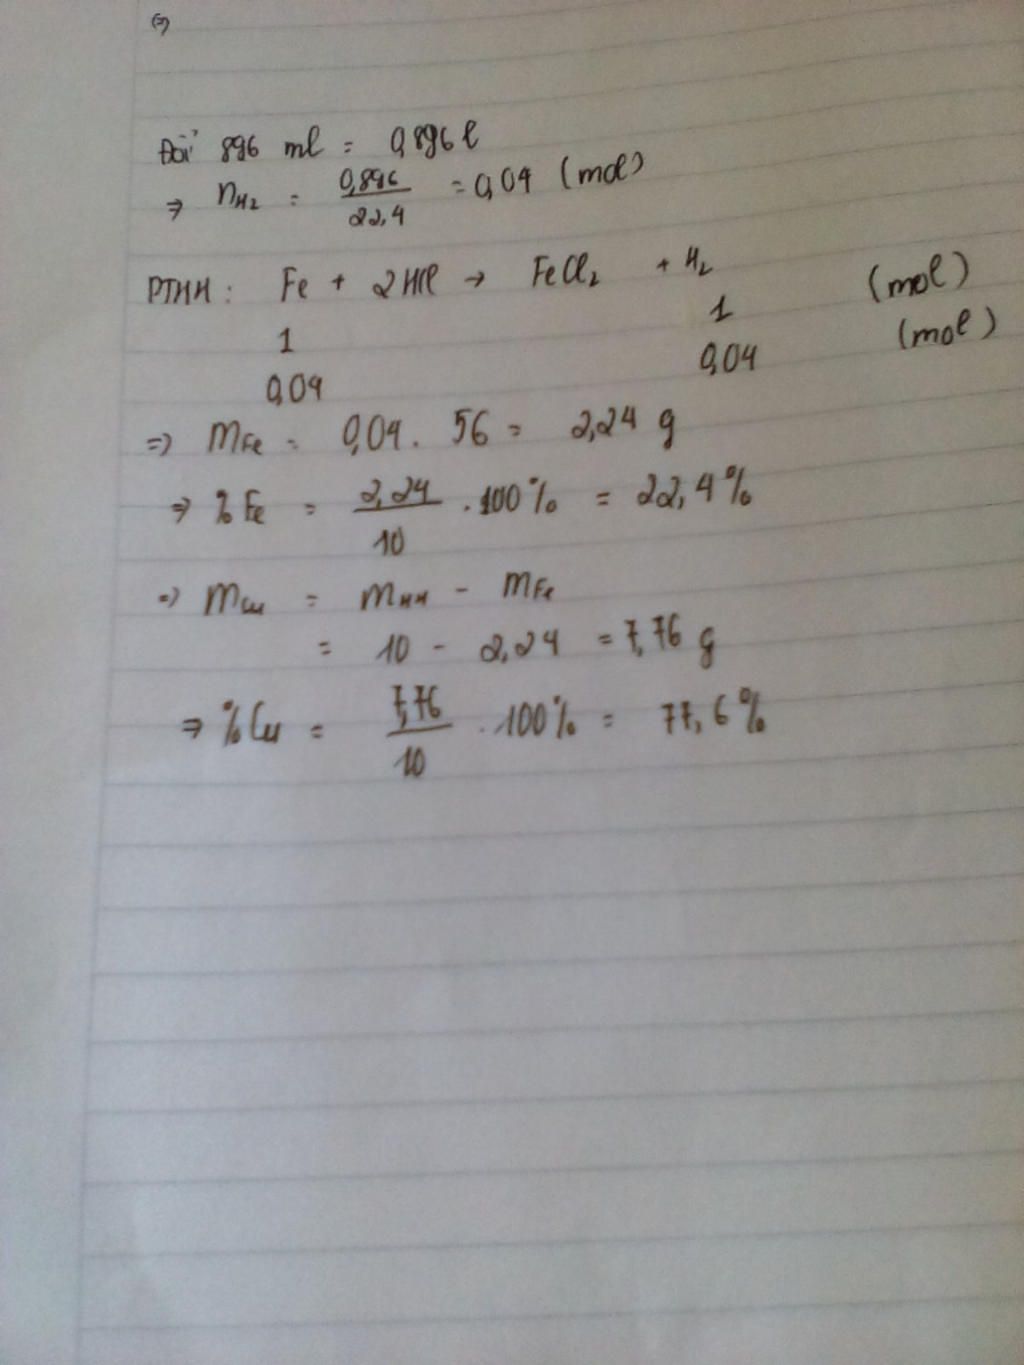 Đổi 896 ml = 0,896 l
⇒ nH2 = 0,896/22,4 = 0,04 (mol)
PTHH : Fe + 2HCl → FeCl2 + H2
1 1 (mol)
0,04 0,04 (mol)
⇒ mFe = 0,04 . 56 = 2,24 g
⇒ % Fe = 2,24/10 . 100% = 22,4%
⇒ mCu = mHH - mFe
= 10 - 2,24 = 7,76 g
⇒ % Cu = 7,76/10 . 100% = 77,6%